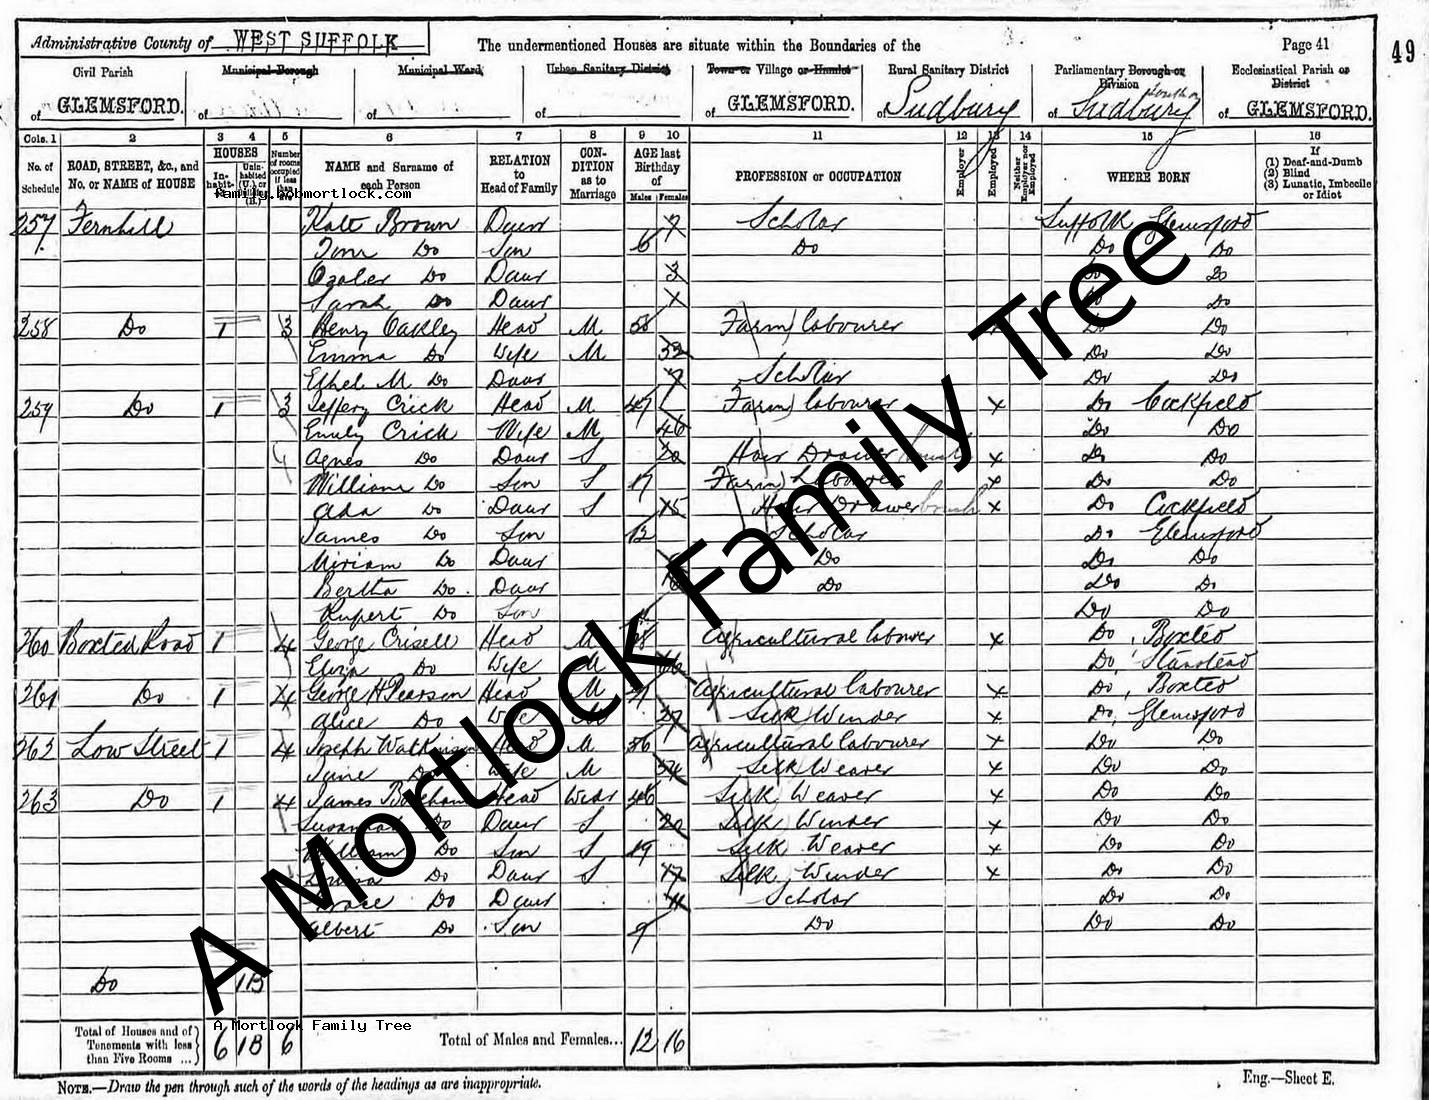 Administrative County of WEST SUFFOLK
The undermentioned Houses are situate within the Boundaries of the
Page 41
49
Civil Parish
of GLEMSFORD.
Municipal Borough
of
Municipal Ward
of
Urban Sanitary District
of
Town or Village or Hamlet
of GLEMSFORD.
Rural Sanitary District
of Sudbury
Parliamentary Borough or Division
of Sudbury
Ecclesiastical Parish or District
of GLEMSFORD.
Cols. 1 2 3 4 5 6 7 8 9 10 11 12 13 14 15 16
No. of Schedule
ROAD, STREET, &c., and No. or NAME of HOUSE
HOUSES
NAME and Surname of each Person
RELATION to Head of Family
CONDITION as to Marriage
AGE last Birthday of
Males Females
PROFESSION or OCCUPATION
Employer
Employed
Neither Employer nor Employed
WHERE BORN
If
(1) Deaf-and-Dumb
(2) Blind
(3) Lunatic, Imbecile or Idiot
family.bobmortlock.com
257 Fernhill Kate Brown Daur 7 Scholar Suffolk Glemsford
Tom Do Son 6 Do Do Do
Do Daur 3 Do Do
Sarah Do Daur Do Do
258 Do 1 3 Henry Oakley Head M 58 Farm labourer Do Do
Emma Do Wife M Do Do
Ethel M Do Daur 7 Scholar Do Do
259 Do 1 3 Jeffery Crick Head M 47 Farm labourer x Do Cockfield
Emily Crick Wife M 46 Do Do
Agnes Do Daur S 20 Hair Drawer x Do Do
William Do Son S 17 Farm Labourer x Do Do
Ada Do Daur S 15 Hair Drawer brush x Do Cockfield
James Do Son 12 Scholar Do Glemsford
Miriam Do Daur Do Do Do
Bertha Do Daur Do Do Do
Rupert Do Son Do Do
260 Boxted Road 1 4 George Crisell Head M Agricultural labourer x Do Boxted
Eliza Do Wife M Do Stanstead
261 Do 1 4 George H Pearson Head M Agricultural labourer x Do Boxted
Alice Do Wife M 27 Silk Winder x Do Glemsford
262 Low Street 1 4 Joseph Head M 36 Agricultural labourer x Do Do
Jane Do Wife M 34 Silk Weaver x Do Do
263 Do 1 4 James Head Widr 46 Silk Weaver x Do Do
Susannah Do Daur S 20 Silk Winder x Do Do
William Do Son S 19 Silk Weaver x Do Do
Do Daur S 17 Silk Winder x Do Do
Do Daur 11 Scholar Do Do
Albert Do Son 9 Do Do Do
Do 1B
A Mortlock Family Tree
A Mortlock Family Tree
Total of Houses and of Tenements with less than Five Rooms ... 6 1B 6
Total of Males and Females... 12 16
NOTE.—Draw the pen through such of the words of the headings as are inappropriate.
Eng.—Sheet E.